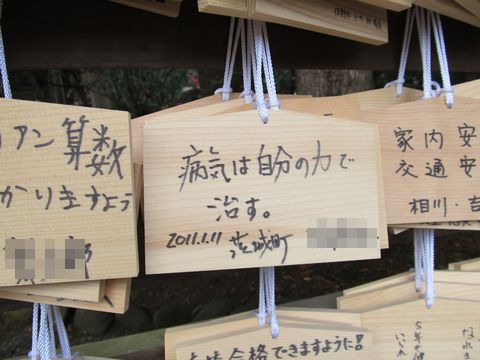 アン算数
かりますよう
郎
病気は自分の力で
治す。
2011.1.11 茨城町
家内安
交通安
相川・吉
合格できますように!!